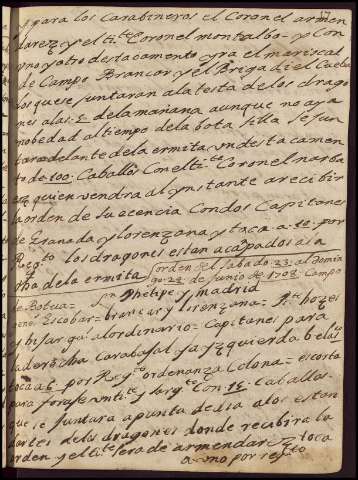 y para los Carabineros el Coronel armen
darez y el tite Coronel montalbo y Con
uno y otro destacamento yra el mariscal
de Campo Brancor y el Brigadiel
los que se juntaran a la testa de los drago
nes a las 5 de la mañana aunque no aya
nobedad al tiempo de la bota silla se jun
tara delante de la ermita un destacamen
to de 100 Caballos Con el tite Coronel narba
ez quien vendra al ynstante a recibir
la orden de su ecencia Con dos Capitanes
de Granada y lorenzana y toca a 10 por
Regto los dragones estan acanpados a la
dha de la ermita orden del sabado 23 al domin
go 24 de junio de 1708 Campo
de Botua = Sn Phelipe y madrid
Escobar = brancor y lorenzana =
al ordinario = Capitanes para
la derecha Carabajal la yzquierda
toca a 6 por Regto ordenanza Colona = escorta
para foraje un tite y sargto Con 15 Caballos
que se juntara a punta de dia a los estan
dartes de los dragones donde recibira la
orden y el tite sera de armendarez toca
a uno por regto